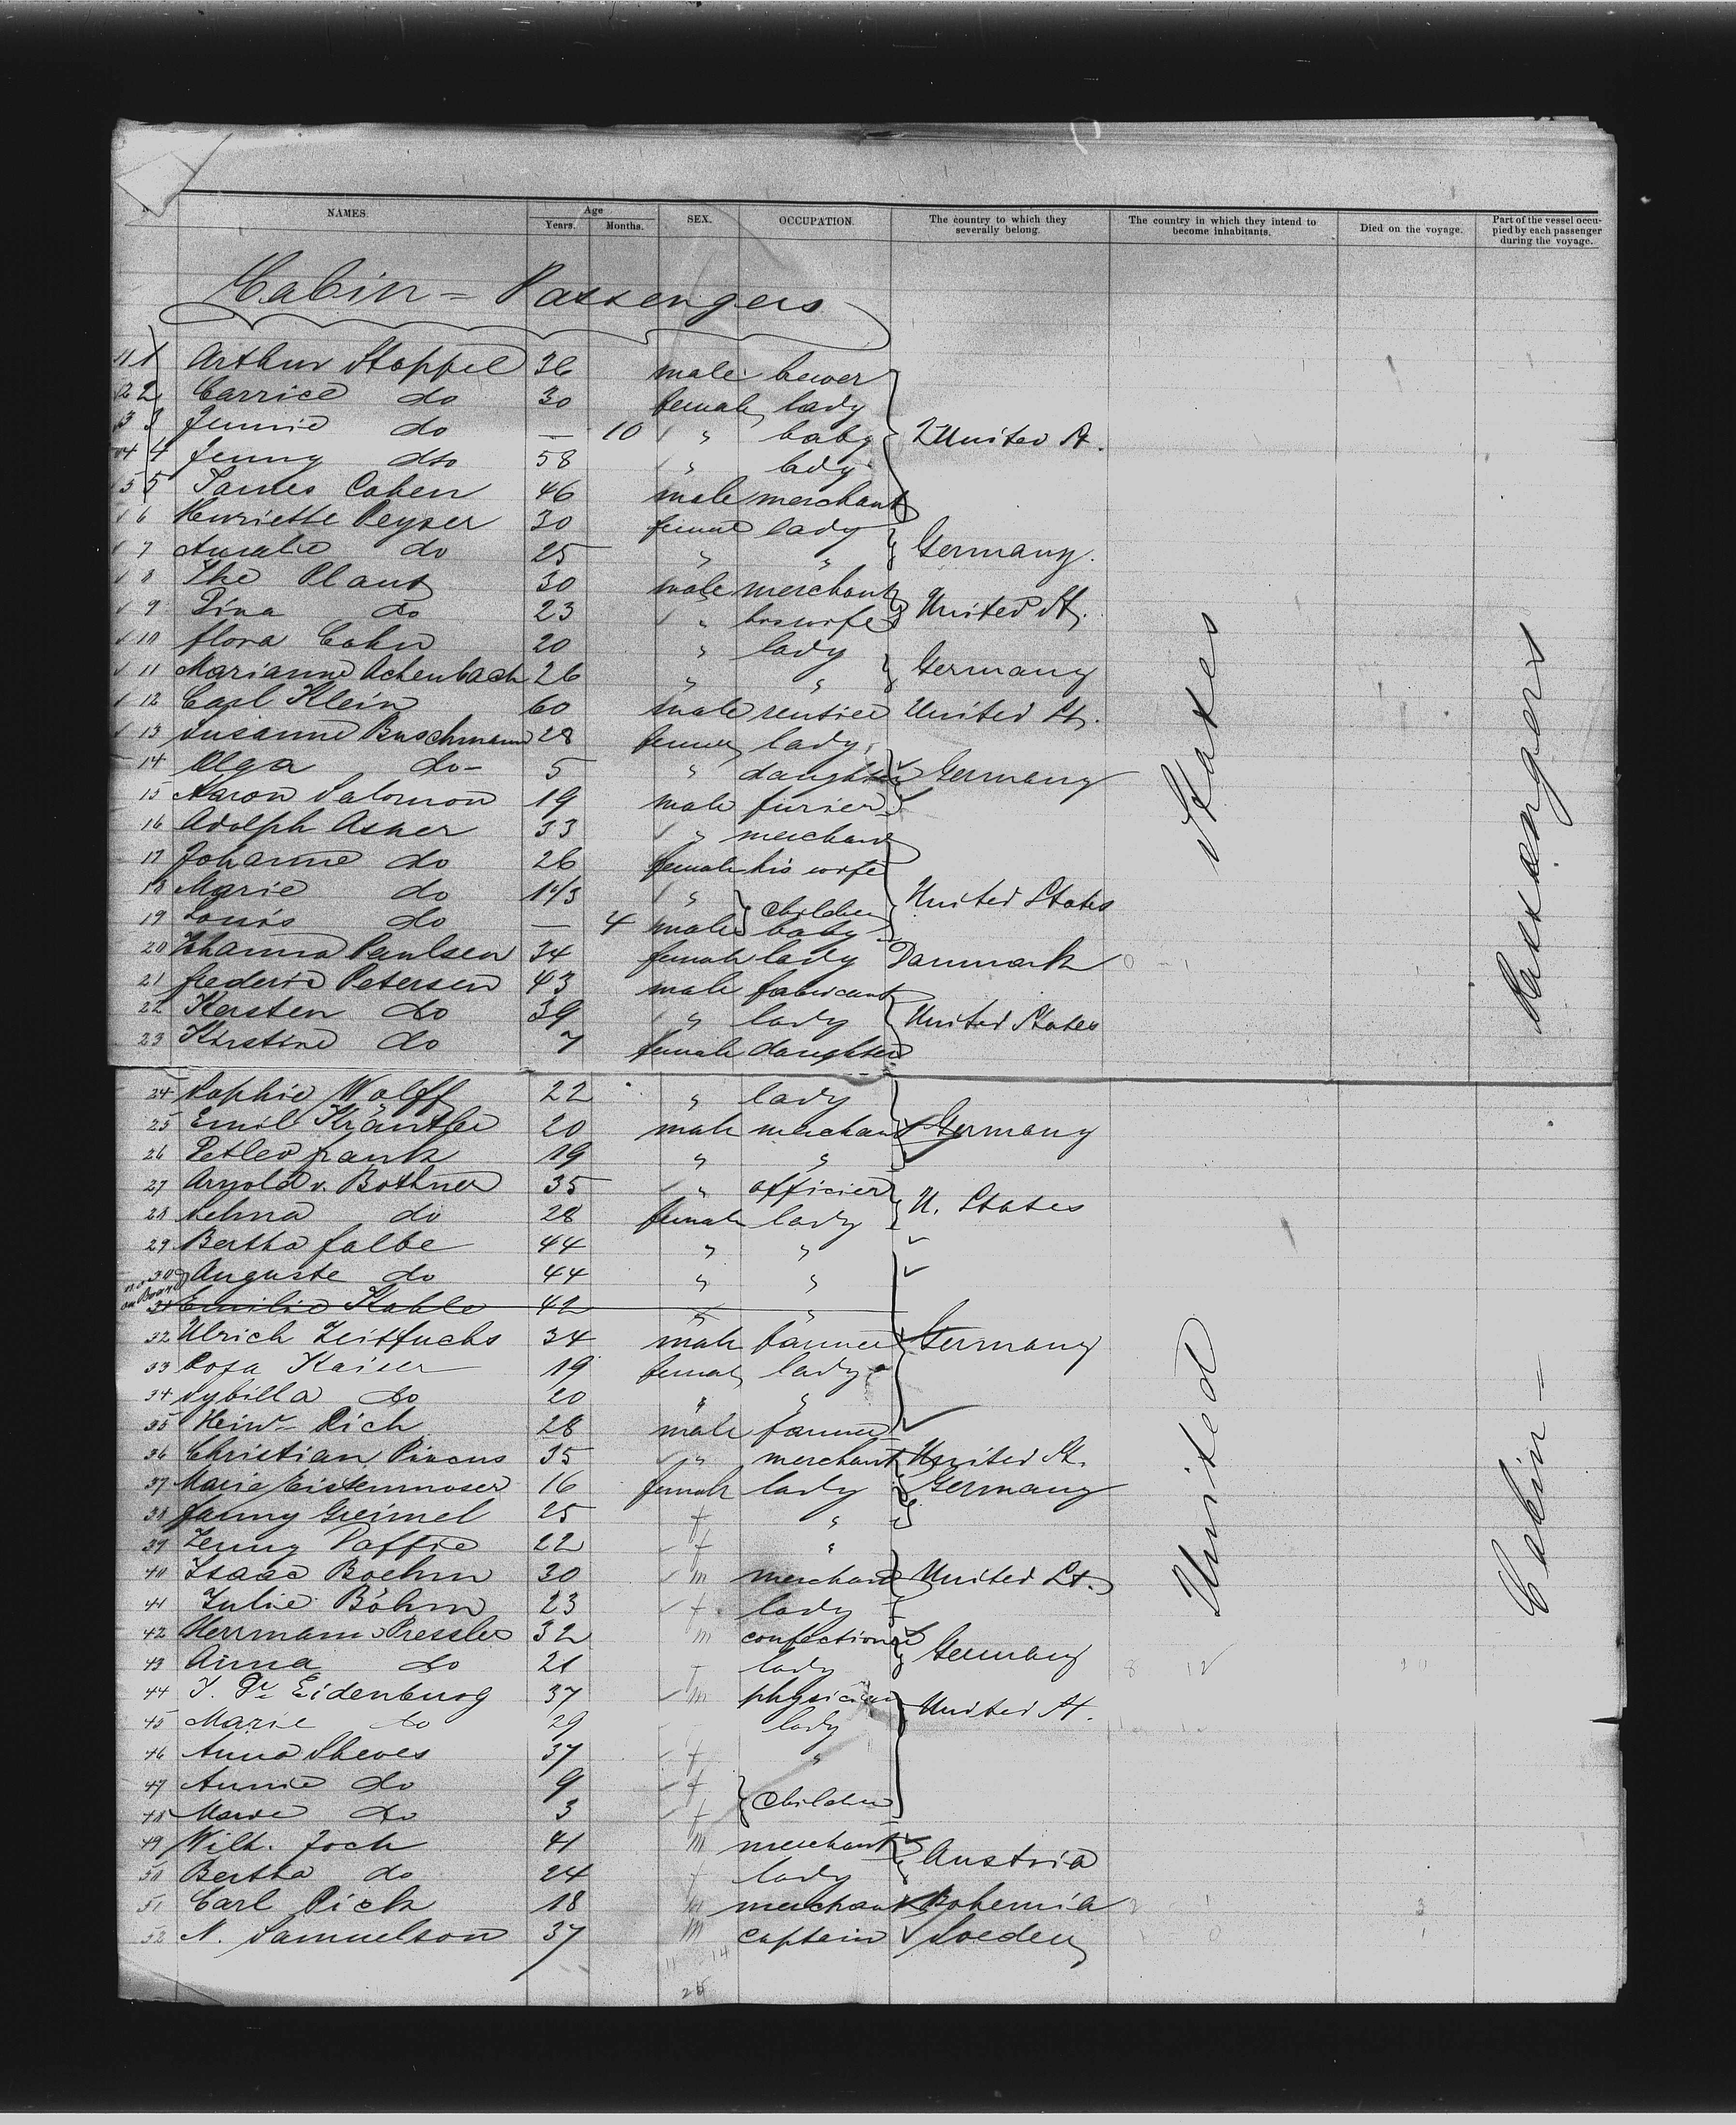 NAMES. Age Years. Months. SEX. OCCUPATION. The country to which they severally belong. The country in which they intend to become inhabitants. Died on the voyage. Part of the vessel occupied by each passenger during the voyage.
Cabin = Passengers
1 Arthur Stoppel 36 male
2 Carrie do 30 female lady
3 Jennie do — 10 " baby United St.
4 Jenny dto 58 " lady
5 James Cohen 46 male merchant
6 Henriette Peyser 30 female lady
7 Amalie do 25 " " Germany.
8 The Plaut 30 male merchant
9 Lina do 23 " his wife United St.
10 flora Cohn 20 " lady
11 Marianne Achenbach 26 " " Germany
12 Carl Klein 60 male rentier United St.
13 Susanne Buschmann 28 female lady
14 Olga do 5 " daughter Germany
15 Aaron Salomon 19 male furier
16 Adolph Asher 33 " merchant
17 Johanne do 26 female his wife
18 Marie do " children United States
19 Louis do — 4 male baby
20 Johanna Paulsen 34 female lady Danmark
21 frederic Petersen 43 male fabricant
22 Kersten do 39 " lady United States
23 Kirstine do 7 female daughter
24 Sophie Wolff 22 " lady
25 Emil Kräntler 20 male merchant Germany
26 Detlev frank 19 " "
27 Arnold v. Bothmer 35 " officier U. States
28 Selma do 28 female lady
29 Bertha falbe 44 " "
30 Auguste do 44 " "
not on Board 31 Emilie Kahle 42 "
32 Ulrich Zeitfuchs 34 male farmer Germany
33 Rosa Kaiser 19 female lady
34 Sybilla do 20 " "
35 Heinr. Rich 28 male farmer
36 Christian Pincus 35 " merchant United St.
37 Maria 16 female lady Germany
38 fanny Greimel 25 f "
39 Jenny 22 f "
40 Isaac Boehm 30 m merchant United St.
41 Julie Böhm 23 f lady
42 Herrmann Pressler 32 m confectioner Germany
43 Anna do 21 f lady
44 J. Dr. Eidenburg 37 m physician United St.
45 Marie do 29 lady
46 Anna Sheves 37 f "
47 Annie do 9 f children
48 Marie do 3 f
49 Wilh. Joch 41 m merchant Austria
50 Bertha do 24 f lady
51 Carl Pick 18 m merchant Bohemia
52 N. Samuelson 37 m captain Sweden
United States
Cabin = Passengers